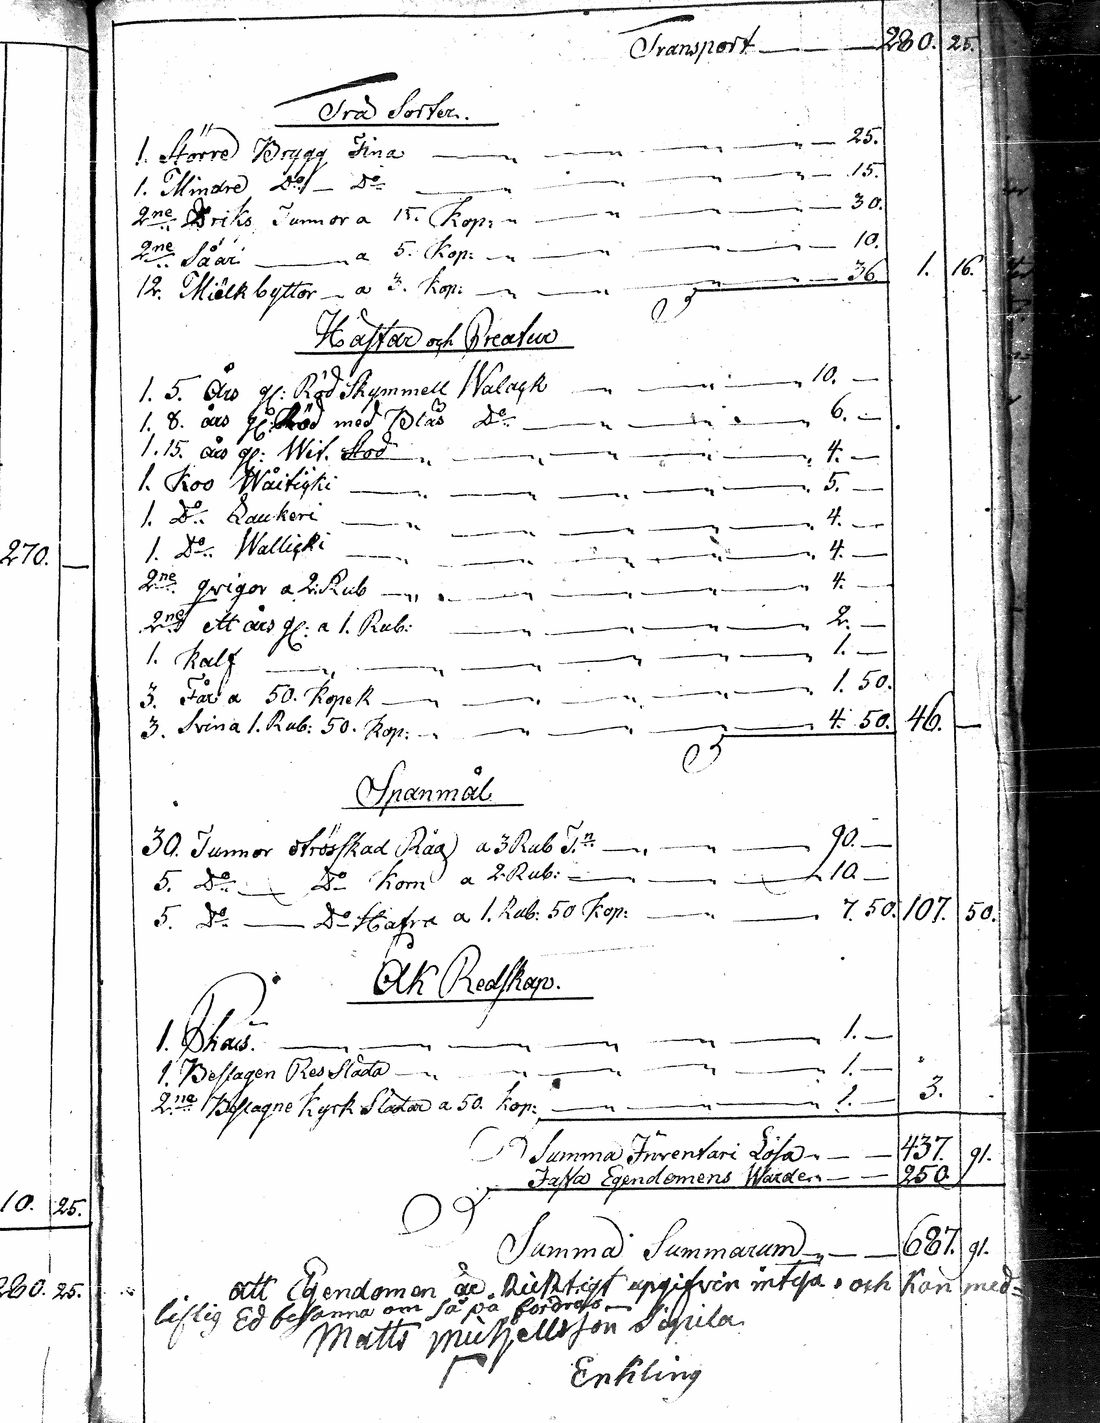 Transport 280. 25.
Trä Sorter.
1. Större Brygg Tina 25.
1. Mindre Do Do 15.
2ne Driks Tunnor a 15. Kop: 30.
2ne Såår a 5. Kop: 10.
12. Miölkbyttor a 3. Kop: 36 1. 16.
Hästar och Creatur
1. 5. Års gl: Röd Skymmell Walack 10.
1. 8. års gl: Röd med Bläs Do 6.
1. 15. års gl: Wit. Stod 4.
1. Koo Wäiticki 5.
1. Do Laukeri 4.
1. Do Wallicki 4.
270.
2ne qvigor a 2. Rub 4.
2ne ett års gl: a 1. Rub: 2.
1. Kalf 1.
3. Får a 50. Kopek 1. 50.
3. Svin a 1. Rub: 50. Kop: 4. 50. 46.
Spanmål
30. Tunnor otrösskad Råg a 3 Rub T:n 90.
5. Do Do Korn a 2. Rub: 10
5. Do Do Hafra a 1. Rub: 50 Kop: 7. 50. 107. 50.
Åk Redskap.
1. 1.
1. Beslagen Res Släda 1.
2ne Beslagne Kyrk Slädar a 50. Kop: 1. 3.
Summa Inventari Lösa 437. 91.
Fasta Egendomens Wärde 250.
10. 25.
Summa Summarum 687. 91.
280. 25.
att Egendomen är Ricktigt upgifven intyga och Kan med=
liflig Ed besanna om så på fordras
Matts Michellsson Sipila
Enkling